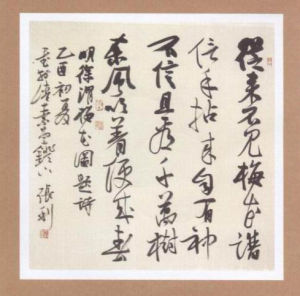 從來不見梅花譜
信手拈来自有神
不信且看千萬樹
東風吹着便成春
明徐渭梅花圖題詩
乙酉初夏
張利